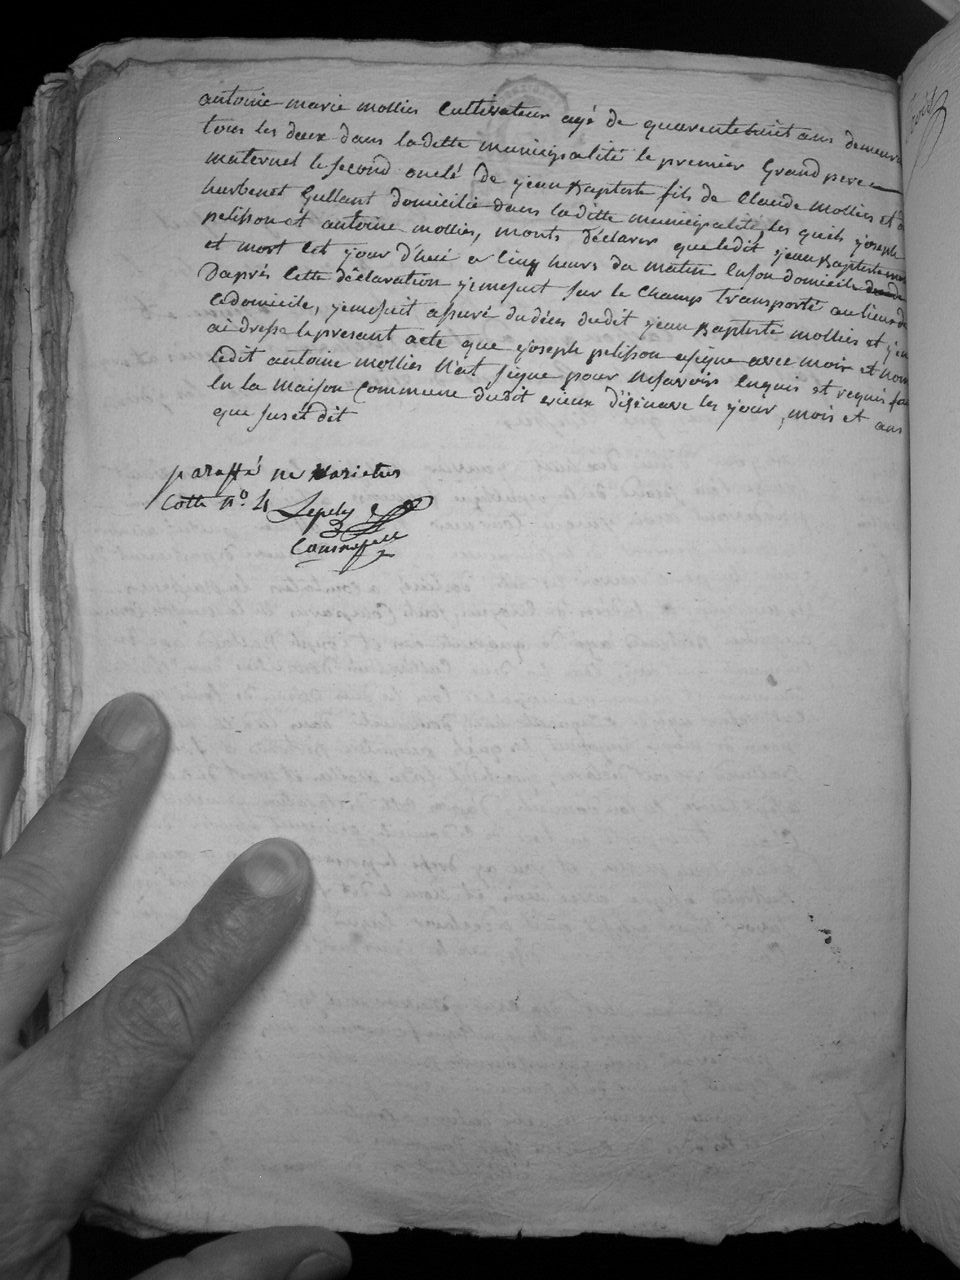 antoine marie mollies Cultivateur agé de quarentehuit ans demeure
tous les deux dans ladette municipalité le premier Grand pere
maternel le second onclé de jean Baptiste fils de Claude Mollies et
Gullant domicilié dans laditte municipalité les quels joseph
pelisson et antoine mollies, monts déclarer que ledit jean Baptiste
et mort cet jour d'huie a cinq heurs du matin en son domicile
Daprés Cette déclaration je me suit sur le Champ transporté au lieu de
ledomicile, je me suit assuré du décés dudit jean Baptiste mollies et j'en
ai dressé le presant acte que joseph pelisson asigne avec moi et non
ledit antoine mollies n'at signe pour ne savoir enquis et requis
en la maison Commune dudit les jour mois et ans
que sus et dit
paraffé ne varietur
Cotte no. 4